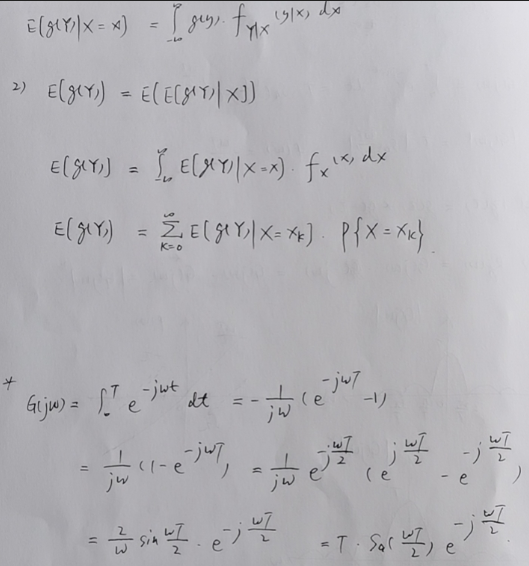 E[g(Y)|X=x) = ∫_{-∞}^{∞} g(y). f_{Y|X}(y|x) dx
2) E[g(Y)] = E(E[g(Y)|X])
E[g(Y)] = ∫_{-∞}^{∞} E[g(Y)|X=x). f_X(x) dx
E[g(Y)] = ∑_{K=0}^{∞} E[g(Y)|X=x_K]. P{X=x_K}.
* G(jω) = ∫_0^T e^{-jωt} dt = -\frac{1}{jω} (e^{-jωT} -1)
= \frac{1}{jω} (1-e^{-jωT}) = \frac{1}{jω} e^{-j\frac{ωT}{2}} (e^{j\frac{ωT}{2}} - e^{-j\frac{ωT}{2}})
= \frac{2}{ω} sin\frac{ωT}{2} . e^{-j\frac{ωT}{2}} = T · Sa(\frac{ωT}{2}) e^{-j\frac{ωT}{2}}.